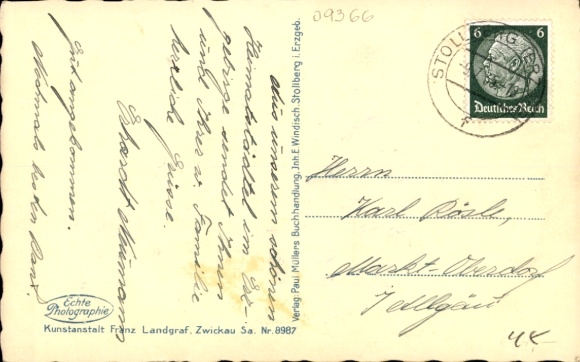 09366
Aus unserem schönen
Heimatstädtel im Erz-
gebirge sendet Ihnen
und Ihrer w. Familie
herzliche Grüsse
Erhardt Neumann
Gut angekommen.
Nochmals besten Dank
Echte
Photographie
Kunstanstalt Franz Landgraf, Zwickau Sa. Nr. 8987
Verlag: Paul Müllers Buchhandlung, Inh. E. Windisch, Stollberg i. Erzgeb.
STOLLBERG
6 6
Deutsches Reich
Herrn
Karl Rösle,
Markt-Oberdorf
i Allgäu